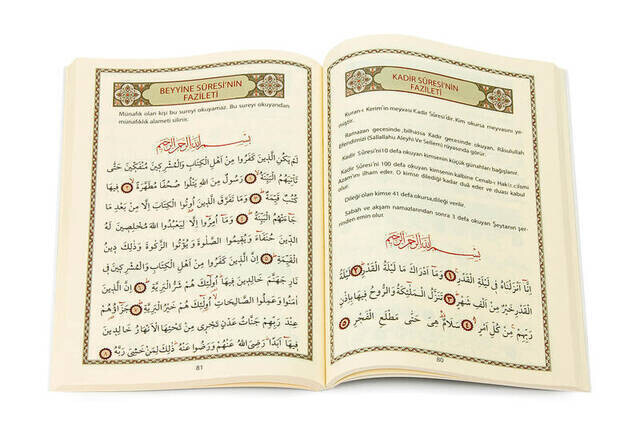 KADİR SÛRESİ'NİN
FAZİLETİ
Kuran-ı Kerim'in meyvası Kadir Sûresi'dir. Kim okursa meyvasını yemiştir.
Ramazan gecesinde, bilhassa Kadir gecesinde okuyan, Râsulullah
Efendimizi (Sallallahu Aleyhi Ve Sellem) rüyasında görür.
Kadir Sûresi'10 defa okuyan kimsenin küçük günahları bağışlanır.
Kadir Sûresi'ni 100 defa okuyan kimsenin kalbine Cenab-ı Hak
Azam'ını ilham eder. O kimse dilediği kadar duâ eder ve duası kabul
olur.
Dileği olan kimse 41 defa okursa, dileği verilir.
Sabah ve akşam namazlarından sonra 3 defa okuyan Şeytanın şerrinden emin olur.
بِسْمِ اللّٰهِ الرَّحْمٰنِ الرَّحِيمِ
اِنَّٓا اَنْزَلْنَاهُ ف۪ي لَيْلَةِ الْقَدْرِ ١ وَمَٓا اَدْرٰيكَ مَا لَيْلَةُ الْقَدْرِ ٢ لَيْلَةُ
الْقَدْرِ خَيْرٌ مِنْ اَلْفِ شَهْرٍ ٣ تَنَزَّلُ الْمَلٰٓئِكَةُ وَالرُّوحُ ف۪يهَا بِاِذْنِ
رَبِّهِمْ مِنْ كُلِّ اَمْرٍ ٤ سَلَامٌ هِيَ حَتّٰى مَطْلَعِ الْفَجْرِ ٥
80
BEYYİNE SÛRESİ'NİN
FAZİLETİ
Münafık olan kişi bu sureyi okuyamaz. Bu sureyi okuyandan
münafıklık alameti silinir.
بِسْمِ اللّٰهِ الرَّحْمٰنِ الرَّحِيمِ
لَمْ يَكُنِ الَّذ۪ينَ كَفَرُوا مِنْ اَهْلِ الْكِتَابِ وَالْمُشْرِك۪ينَ مُنْفَكّ۪ينَ حَتّٰى
تَأْتِيَهُمُ الْبَيِّنَةُ ١ رَسُولٌ مِنَ اللّٰهِ يَتْلُوا صُحُفًا مُطَهَّرَةً ٢ ف۪يهَا
كُتُبٌ قَيِّمَةٌ ٣ وَمَا تَفَرَّقَ الَّذ۪ينَ اُو۫تُوا الْكِتَابَ اِلَّا مِنْ بَعْدِ مَا
جَٓاءَتْهُمُ الْبَيِّنَةُ ٤ وَمَٓا اُمِرُٓوا اِلَّا لِيَعْبُدُوا اللّٰهَ مُخْلِص۪ينَ لَهُ
الدّ۪ينَ حُنَفَٓاءَ وَيُق۪يمُوا الصَّلٰوةَ وَيُؤْتُوا الزَّكٰوةَ وَذٰلِكَ د۪ينُ
الْقَيِّمَةِ ٥ اِنَّ الَّذ۪ينَ كَفَرُوا مِنْ اَهْلِ الْكِتَابِ وَالْمُشْرِك۪ينَ ف۪ي
نَارِ جَهَنَّمَ خَالِد۪ينَ ف۪يهَا اُو۬لٰٓئِكَ هُمْ شَرُّ الْبَرِيَّةِ ٦ اِنَّ الَّذ۪ينَ
اٰمَنُوا وَعَمِلُوا الصَّالِحَاتِ اُو۬لٰٓئِكَ هُمْ خَيْرُ الْبَرِيَّةِ ٧ جَزَٓاؤُ۬هُمْ
عِنْدَ رَبِّهِمْ جَنَّاتُ عَدْنٍ تَجْر۪ي مِنْ تَحْتِهَا الْاَنْهَارُ خَالِد۪ينَ
ف۪يهَٓا اَبَدًا رَضِيَ اللّٰهُ عَنْهُمْ وَرَضُوا عَنْهُ ذٰلِكَ لِمَنْ خَشِيَ رَبَّهُ ٨
81